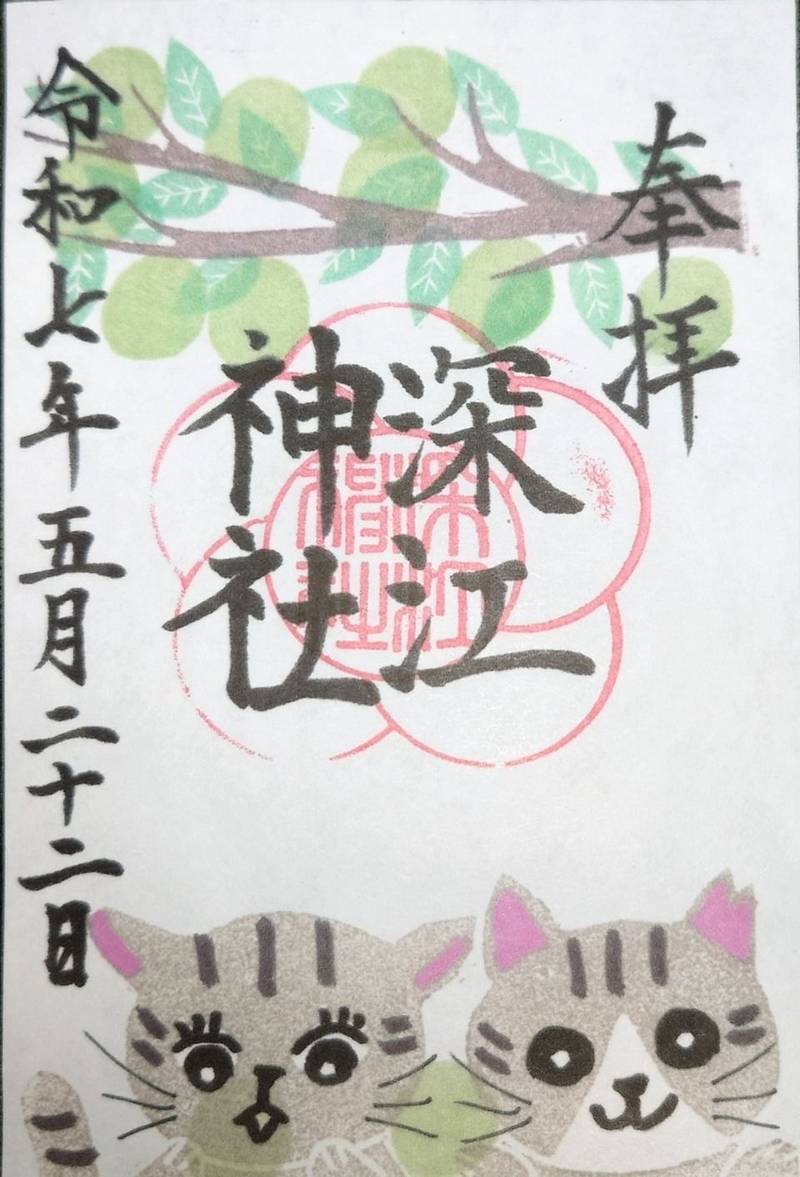 奉拝
深江
神社
深江
稲荷
神社
令和七年五月二十二日